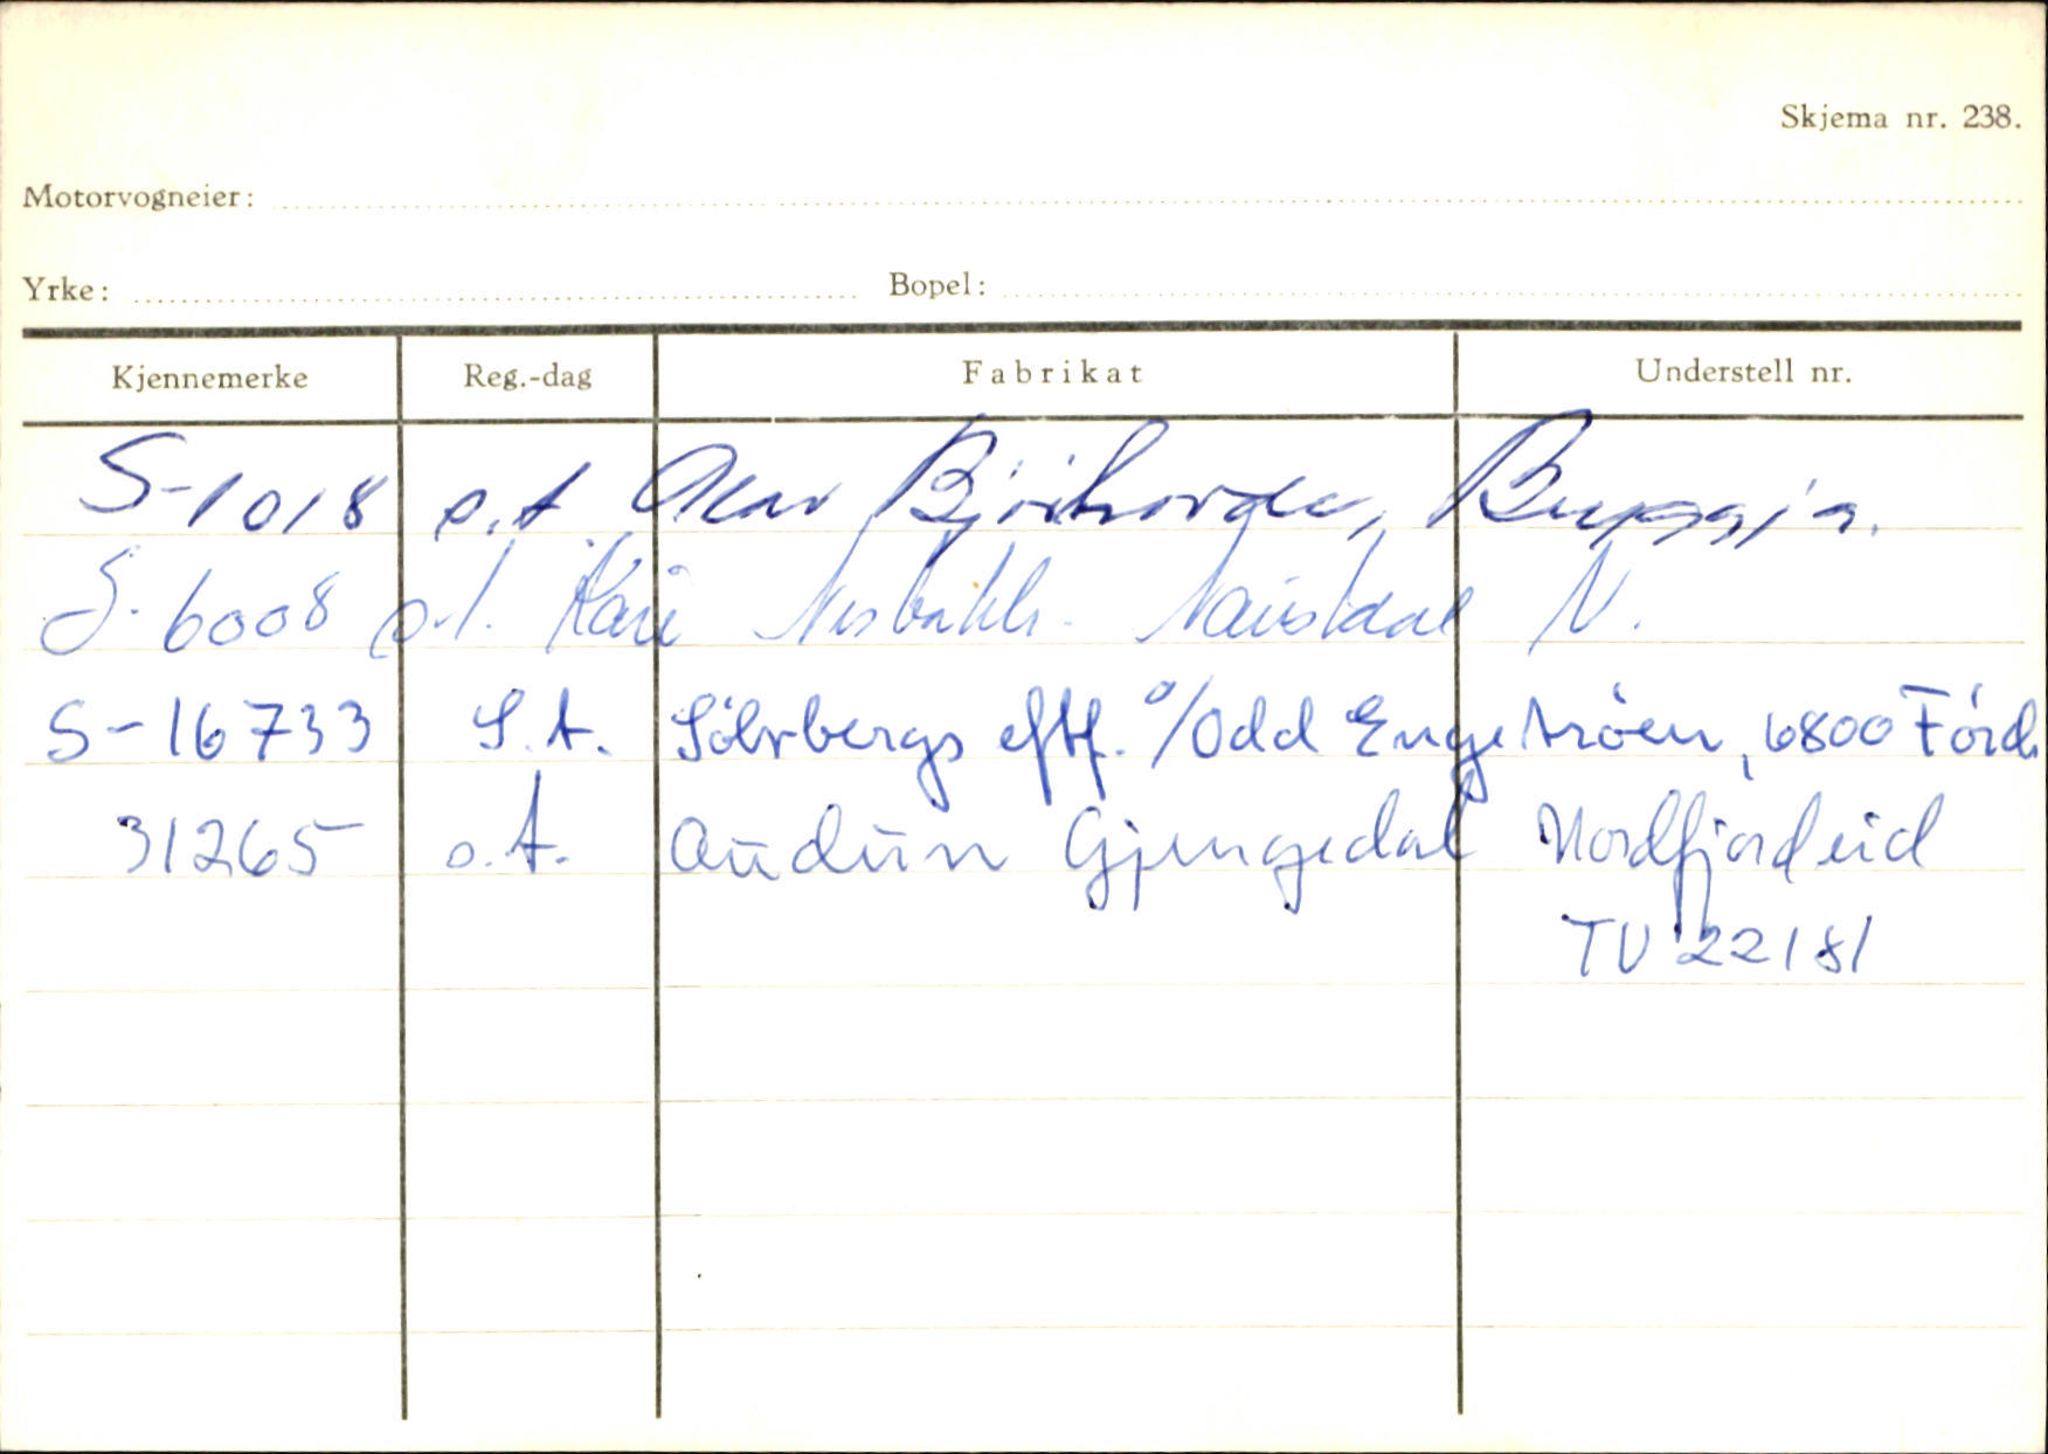 Skjema nr. 238.
Motorvogneier:
Yrke: Bopel:
Kjennemerke Reg.-dag Fabrikat Understell nr.
S-1018 o.t Olav
S-6008 o.t. Kåre Naustdal N.
S-16733 S.t. Sölvbergs eftf. %Odd Engeströen, 6800 Förde
31265 o.t. Audun Gjengedal Nordfjordeid
TV 22181